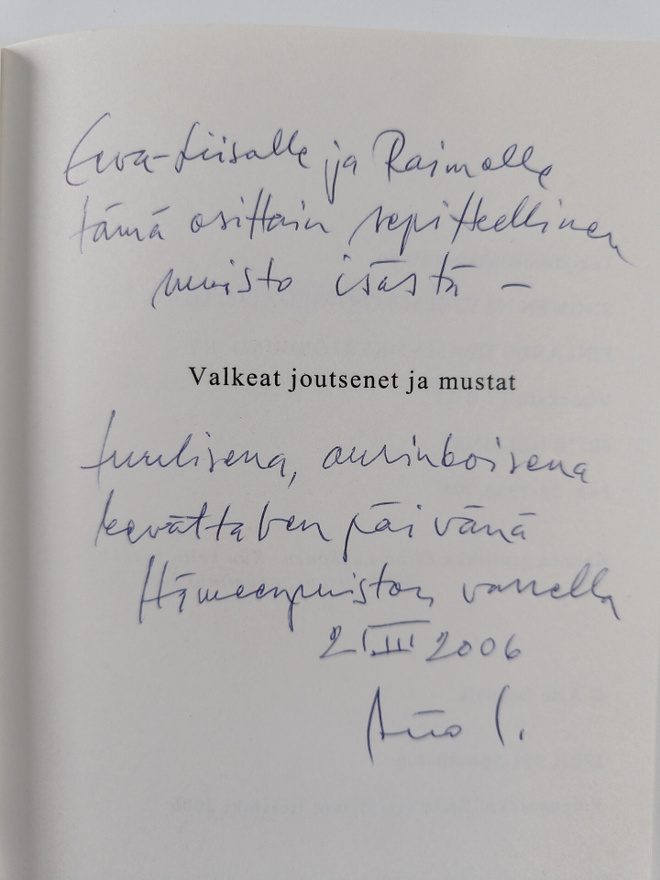 Eeva-Liisalle ja Raimolle
tämä osittain sepitteellinen
muisto isästä –
Valkeat joutsenet ja mustat
tuulisena, aurinkoisena
kevättalven päivänä
Hämeenpuiston varrella
2 III 2006